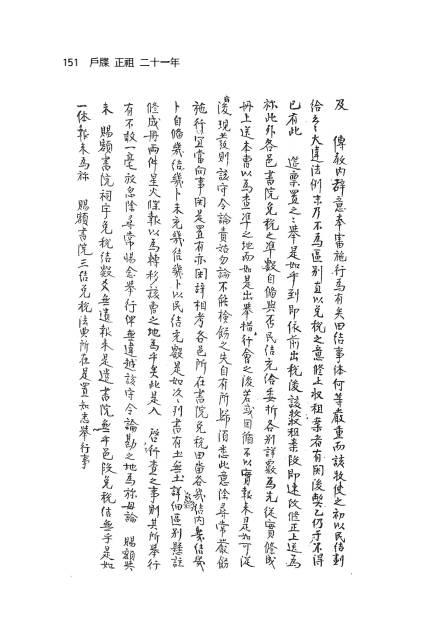 151 戶牒 正祖 二十一年
及 傳敎內辭意奉審施行爲有矣田結事体何等嚴重而該牧使之初以民結劃
給多大違法例京乃不爲區別直以免稅之意修上収租案者有關後弊乙仍于不得
已有此 選稟置之擧是如乎到卽依前出稅後該牧収租案段卽速改修正上送爲
旀此外各邑書院免稅之準數自備與否民結充給委折各別詳覈爲先從實修成
冊上送本曹以爲憑準之地而如是出擧措行會之後若或因循不以實報來是如可從
後現發則該守令論責姑勿論不能檢飭之失自有所歸須悉此意除尋常嚴飭
施行宜當向事關是置有亦關辭相考各邑所在書院免稅田畓各幾結內幾結幾
卜自備幾結幾卜未充幾結幾卜以民結充數是如次次列書有土無土詳細區別懸註
修成冊兩件星火馳報以爲轉移該曹之地爲乎矣此是入 啓行査之事則其所擧行
有不敢一毫放忽除尋常惕念擧行俾無違越該守令論勘之地爲旀毋論 賜額與
未 賜額書院祠宇免稅結數爻無遺報來是遣書院無乎邑段免稅結無乎是如
一体報來爲旀 賜額書院三結免稅法典所在是置如憲擧行事